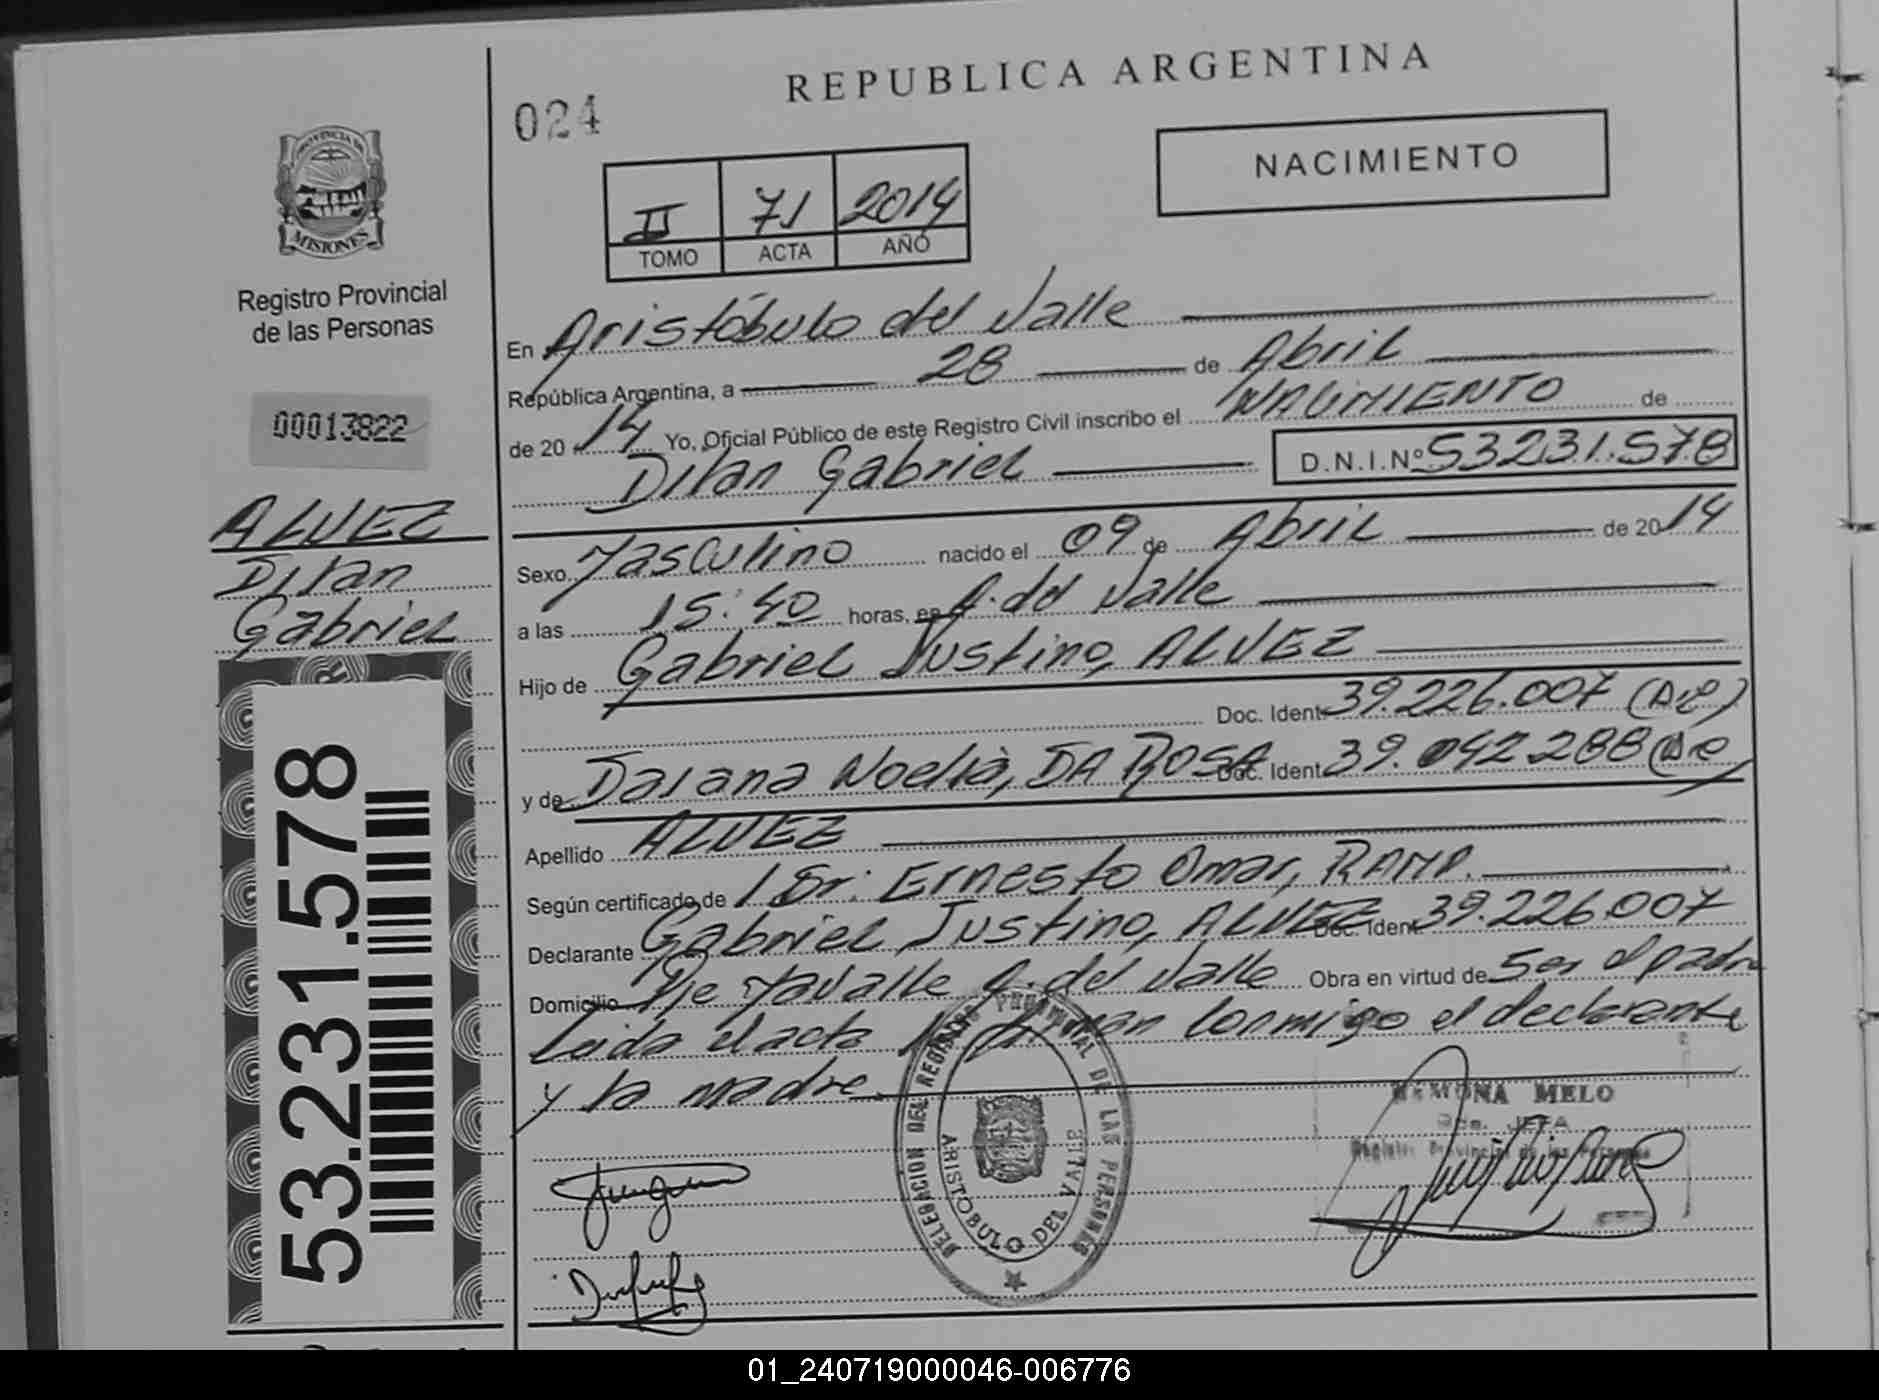 REPUBLICA ARGENTINA
024
NACIMIENTO
II 71 2014
TOMO ACTA AÑO
PROVINCIA DE
MISIONES
Registro Provincial
de las Personas
00013822
ALVEZ
Dilan
Gabriel
53.231.578
En Aristóbulo del Valle
República Argentina, a 28 de Abril
de 2014 Yo, Oficial Público de este Registro Civil inscribo el NACIMIENTO de
Dilan Gabriel D.N.I.Nº 53231.578
Sexo Masculino nacido el 09 de Abril de 2014
a las 15:40 horas, en A. del Valle
Hijo de Gabriel Justino, ALVEZ
Doc. Ident 39.226.007
y de Daiana Noelia, DA ROSA Doc. Ident 39.042.288
Apellido ALVEZ
Según certificado de Dr: Ernesto Omar,
Declarante Gabriel Justino, ALVEZ Doc. Ident 39.226.007
Domicilio A. del Valle Obra en virtud de Ser el padre
Leida el acta la firman conmigo el declarante
y la madre.
DELEGACION DEL REGISTRO PROVINCIAL DE LAS PERSONAS
ARISTOBULO DEL VALLE
RAMONA MELO
JEFA
Registro Provincial de las Personas
01_240719000046-006776